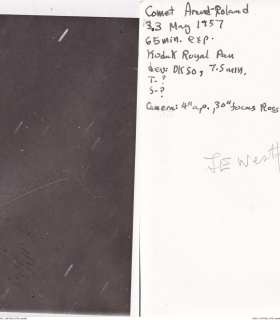 Comet Arend-Roland
3.3 May 1957
65 min. exp.
Kodak Royal Pan
dev: DK50, 7.5 min.
T-?
S-?
Camera: 4" ap., 30" focus Ross
J E West